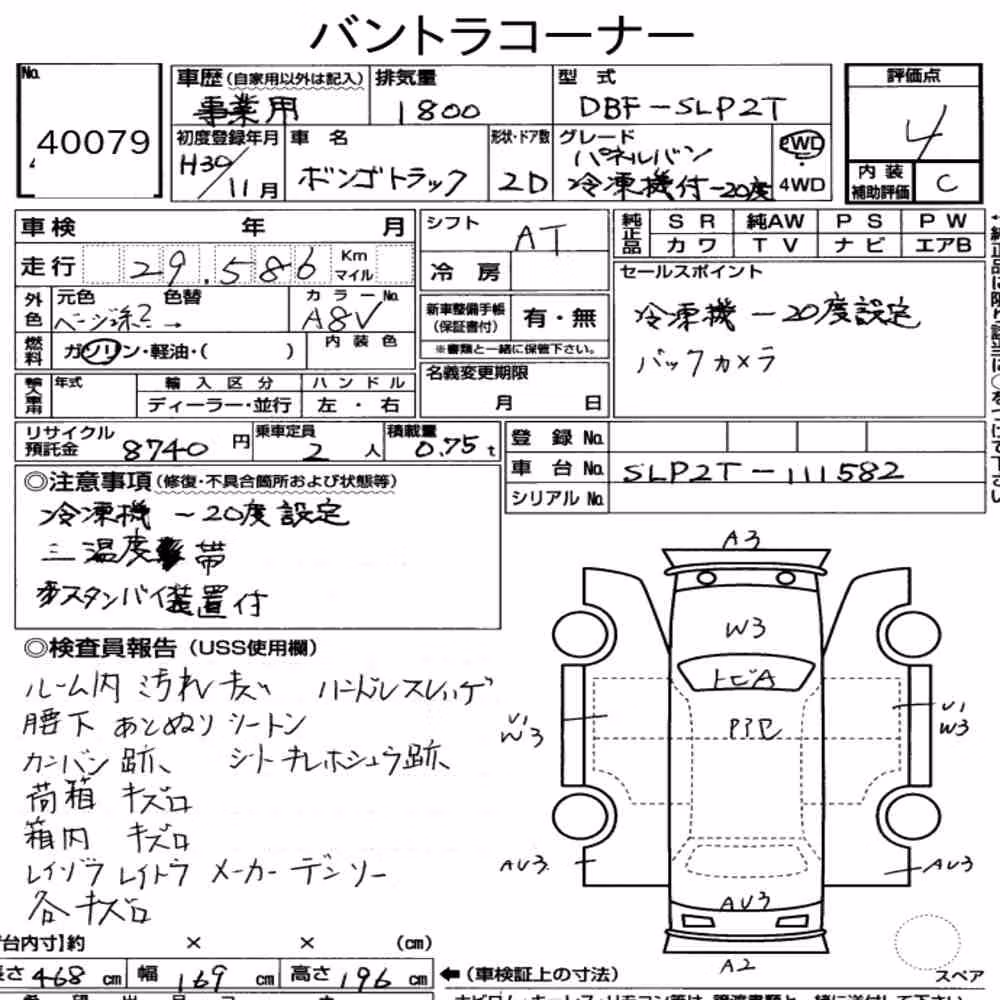 バントラコーナー
No. 40079
車歴 (自家用以外は記入) 排気量 型 式 評価点
事業用 1800 DBF-SLP2T 4
初度登録年月 車 名 形状・ドア数 グレード 2WD
H30/11月 ボンゴトラック 2D パネルバン 冷凍機付-20度 4WD
内 装 補助評価 C
車検 年 月 シフト AT 純正品 SR 純AW PS PW
カワ TV ナビ エアB
走行 29.586 Km マイル 冷 房
セールスポイント
外色 元色 色替 カラーNo. 新車整備手帳 (保証書付) 有・無
→ A8V
冷凍機 -20度設定
※書類と一緒に保管下さい。
バックカメラ
燃料 ガソリン・軽油・( ) 内装色
輸入車用 年式 輸入区分 ハンドル 名義変更期限
ディーラー・並行 左・右 月 日
リサイクル預託金 8740円 乗車定員 2人 積載量 0.75t
登 録 No.
車 台 No. SLP2T-111582
シリアル No.
◎注意事項 (修復・不具合箇所および状態等)
冷凍機 -20度設定
三温度帯
スタンバイ装置付
◎検査員報告 (USS使用欄)
ルーム内 汚れ キズ ハンドルスレ
腰下 あとぬり シートン
カンバン跡、 シート キレホシュウ跡
荷箱 キズロ
箱内 キズロ
メーカー デンソー
各キズロ
A3
W3
トビA
U1 W3
U1 W3
AU3
AU3
AU3
A2
台内寸】約 × × (cm)
長さ 468 cm 幅 169 cm 高さ 196 cm ←(車検証上の寸法)
スペア